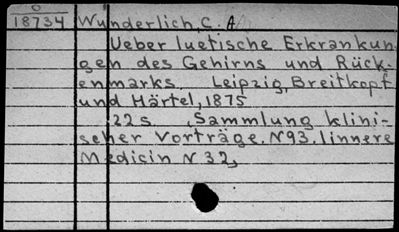 0
18734 Wunderlich, C. A.
Ueber luetische Erkrankun-
gen des Gehirns und Rück-
enmarks. Leipzig, Breitkopf
und Härtel, 1875
22 s. , Sammlung klini-
scher Vorträge. N93. Iinnere
Medicin N 32,